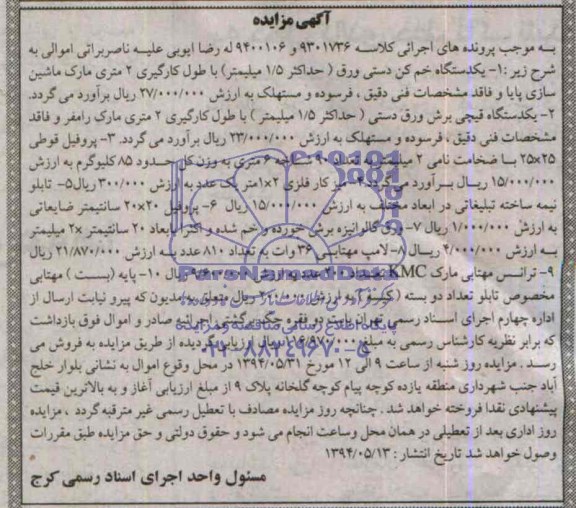 آگهی مزایده
به موجب پرونده های اجرائی کلاسه ۹۳۰۱۷۳۶ و ۹۴۰۰۱۰۶ له رضا ایوبی علیه ناصربراتی اموالی به
شرح زیر :۱- یکدستگاه خم کن دستی ورق ( حداکثر ۱/۵ میلیمتر) با طول کارگیری ۲ متری مارک ماشین
سازی پایا و فاقد مشخصات فنی دقیق ، فرسوده و مستهلک به ارزش ۲۷/۰۰۰/۰۰۰ ریال برآورد می گردد.
۲- یکدستگاه قیچی برش ورق دستی ( حداکثر ۱/۵ میلیمتر ) با طول کارگیری ۲ متری مارک رامفر و فاقد
مشخصات فنی دقیق ، فرسوده و مستهلک به ارزش ۲۳/۰۰۰/۰۰۰ ریال برآورد می گردد. ۳- پروفیل قوطی
۲۵x۲۵ با ضخامت نامی ۲ میلیمتر به تعداد ۹ شاخه ۶ متری به وزن کل حدود ۸۵ کیلوگرم به ارزش
۱۵/۰۰۰/۰۰۰ ریال برآورد می گردد. ۴- میز کار فلزی ۲x۱متر یک عدد به ارزش ۳۰۰/۰۰۰ ریال ۵- تابلو
نیمه ساخته تبلیغاتی در ابعاد مختلف به ارزش ۱۵/۰۰۰/۰۰۰ ریال ۶- پروفیل ۲۰x۲۰ سانتیمتر ضایعاتی
به ارزش ۱/۰۰۰/۰۰۰ ریال ۷- ورق گالوانیزه برش خورده و خم شده و اکثرا بابعاد ۲۰ سانتیمتر x۲ میلیمتر
به ارزش ۴/۰۰۰/۰۰۰ ریال ۸- لامپ مهتابی ۳۶ وات به تعداد ۸۱۰ عدد به ارزش ۲۱/۸۷۰/۰۰۰ ریال
۹- ترانس مهتابی مارک KMC به تعداد عدد به ارزش ریال ۱۰- پایه (بست ) مهتابی
مخصوص تابلو تعداد دو بسته (کیسه) به ارزش ریال متعلق به مدیون که پیرو نیابت ارسال از
اداره چهارم اجرای اسناد رسمی تهران بابت دو فقره چک برگشتی اجرائیه صادر و اموال فوق بازداشت
که برابر نظریه کارشناس رسمی به مبلغ ریال ارزیابی گردیده از طریق مزایده به فروش می
رسد . مزایده روز شنبه از ساعت ۹ الی ۱۲ مورخ ۱۳۹۴/۰۵/۳۱ در محل وقوع اموال به نشانی بلوار خلج
آباد جنب شهرداری منطقه یازده کوچه پیام کوچه گلخانه پلاک ۹ از مبلغ ارزیابی آغاز و به بالاترین قیمت
پیشنهادی نقدا فروخته خواهد شد . چنانچه روز مزایده مصادف با تعطیل رسمی غیر مترقبه گردد ، مزایده
روز اداری بعد از تعطیلی در همان محل وساعت انجام می شود و حقوق دولتی و حق مزایده طبق مقررات
وصول خواهد شد تاریخ انتشار : ۱۳۹۴/۰۵/۱۳
مسئول واحد اجرای اسناد رسمی کرج
ParsNamadData
پایگاه اطلاع رسانی مناقصه و مزایده
۰۲۱-۸۸۳۴۹۶۷۰-۵